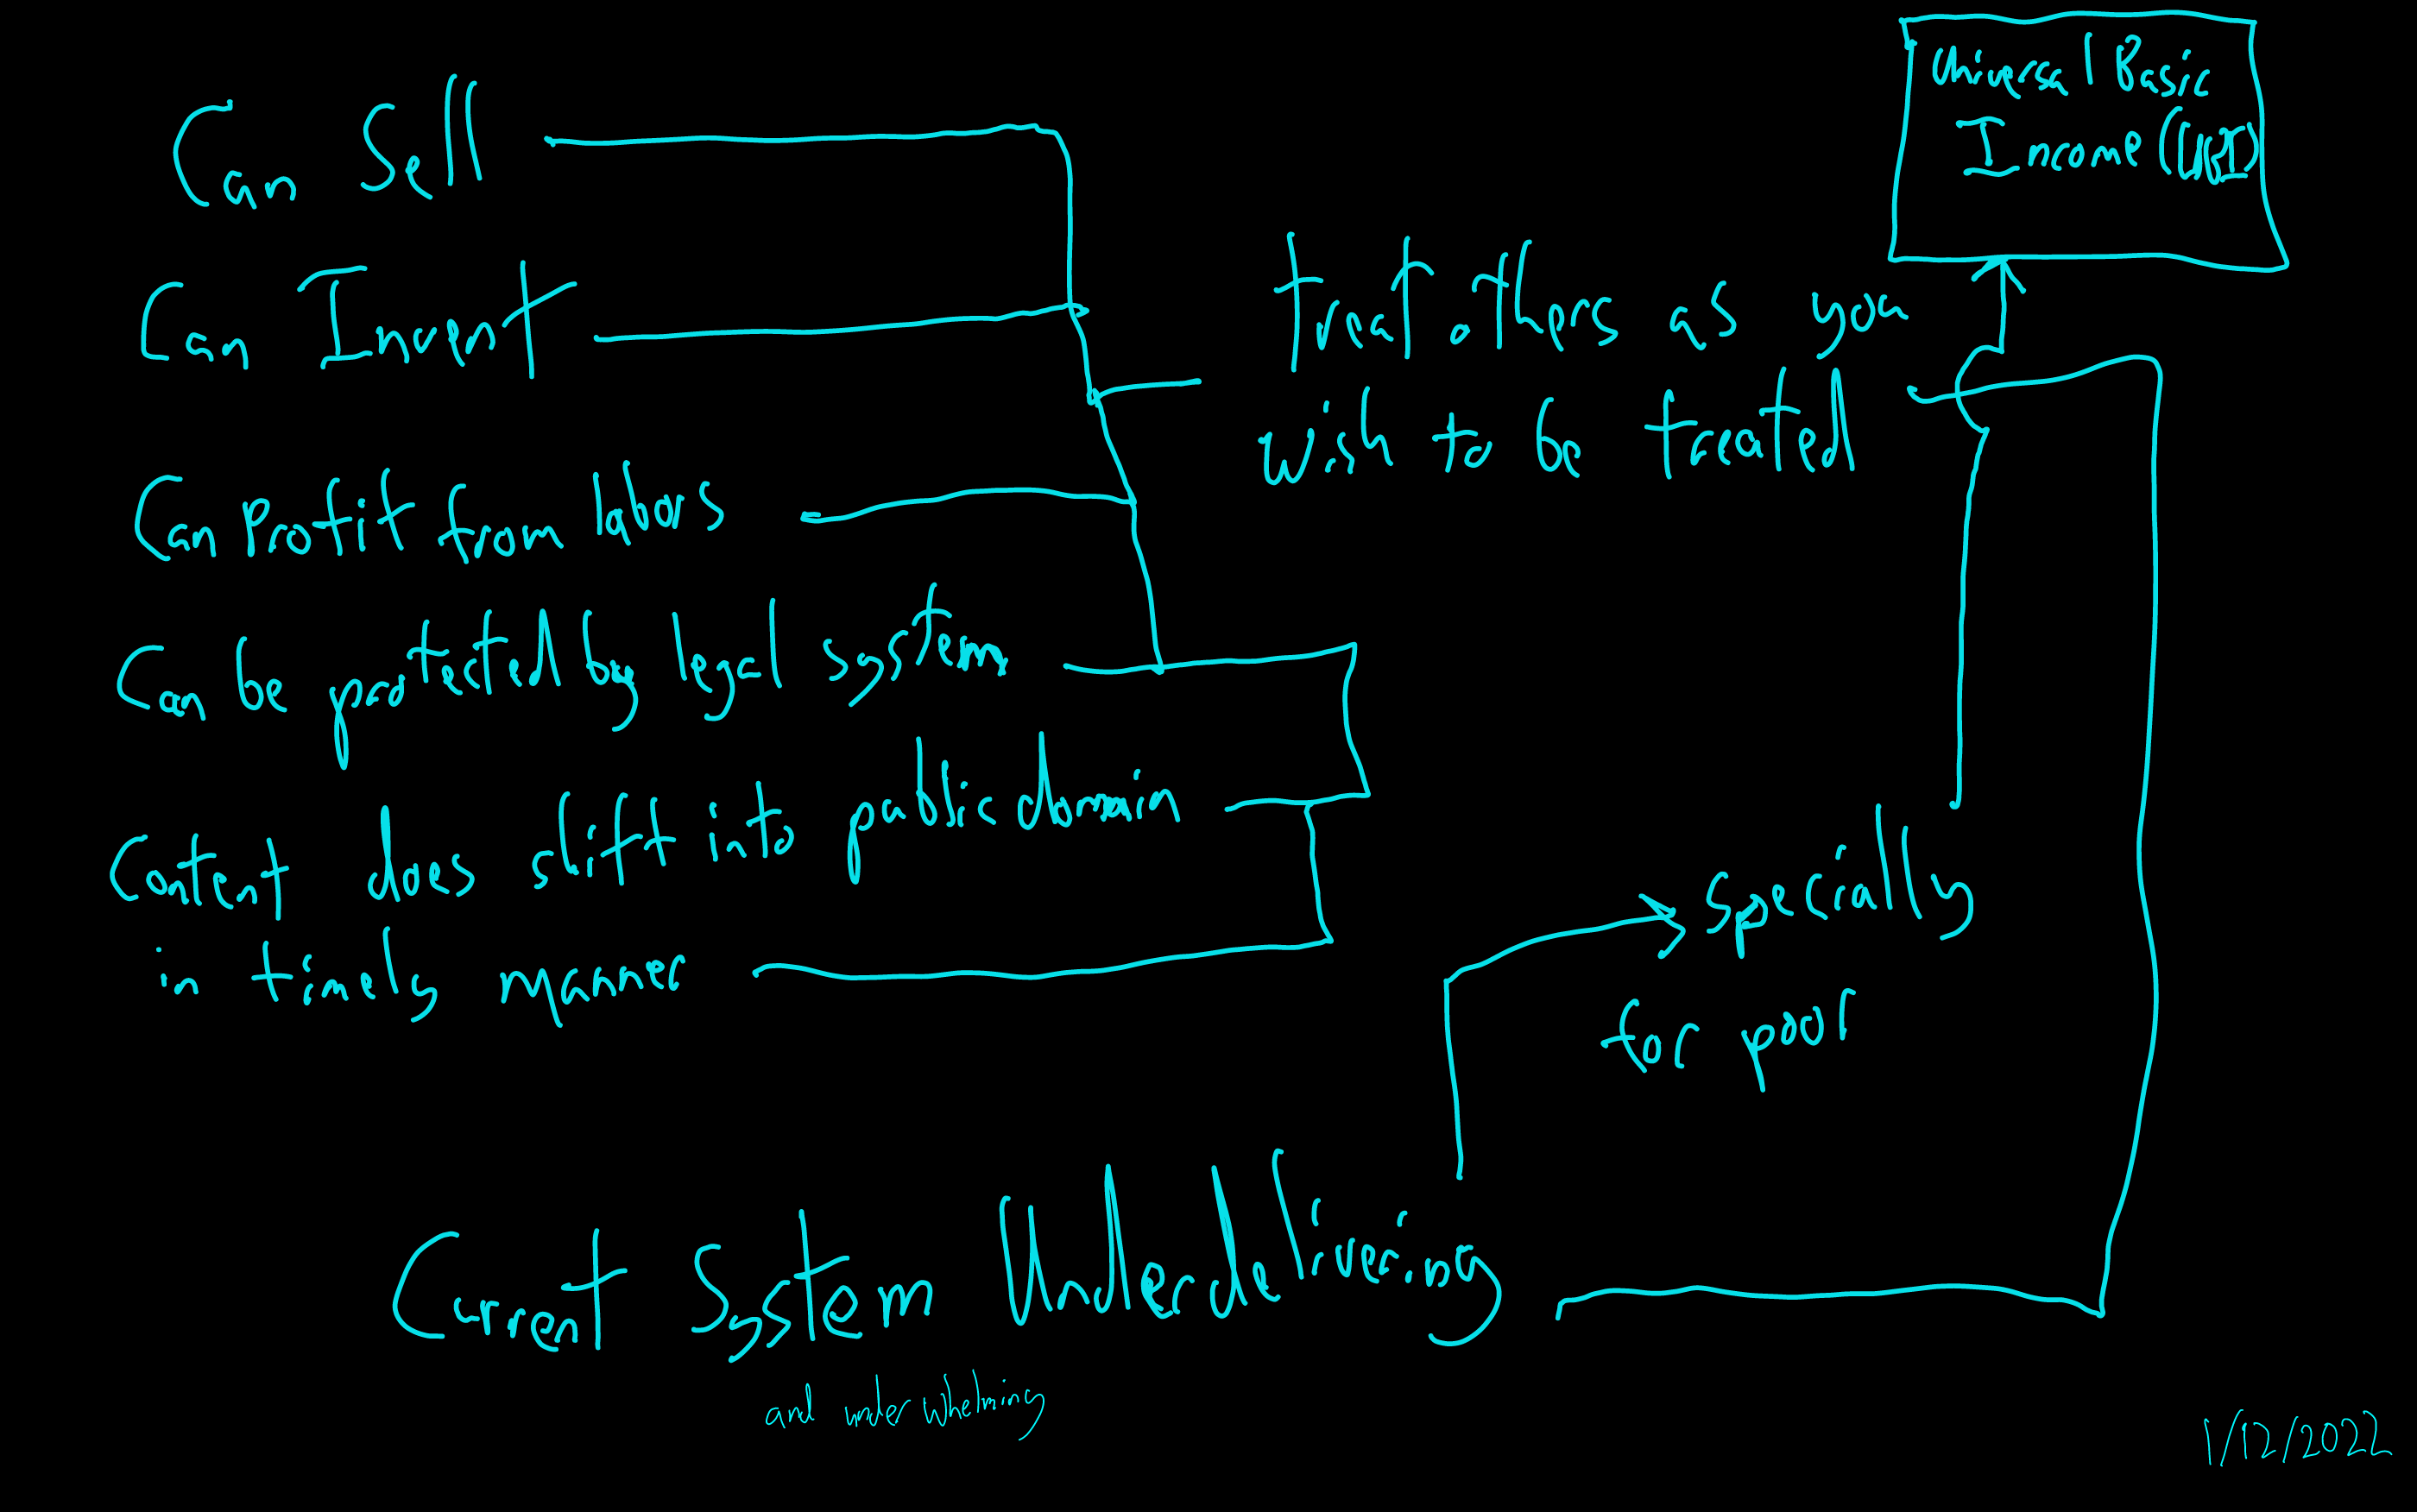 Can Sell
Can Invent
Can Profit from labors
Can be protected by legal system
Content does shift into public domain
in timely manner
treat others as you
wish to be treated
Universal Basic
Income (UBI)
specially
for poor
Current System Underdelivering
and underwhelming
1/12/2022